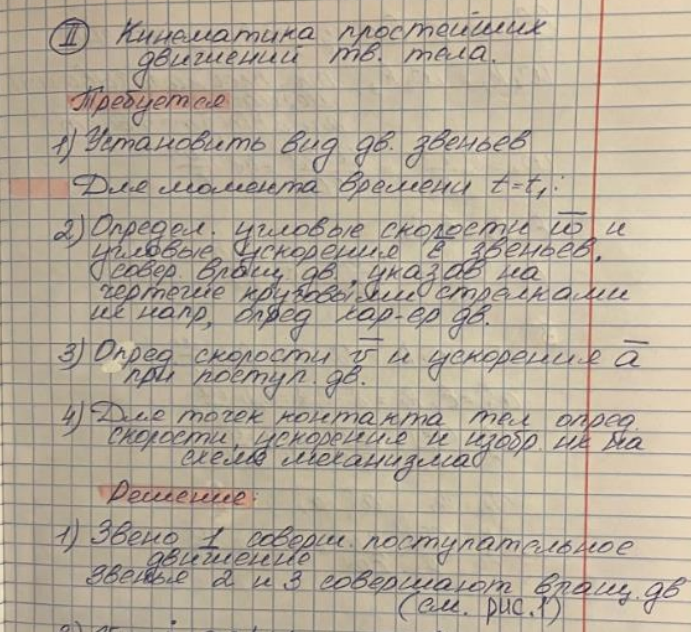 II Кинематика простейших
движений тв. тела.
Требуется
1) Установить вид дв. звеньев
Для момента времени t=t₁:
2) Определ. угловые скорости ω̅ и
угловые ускорения ε̅ звеньев,
совер. вращ. дв, указав на
чертеже круговыми стрелками
их напр, опред хар-ер дв.
3) Опред скорости v̅ и ускорения a̅
при поступ. дв.
4) Для точек контакта тел опред.
скорости, ускорения и изобр. их на
схеме механизма
Решение:
1) Звено 1 соверш. поступательное
движение
Звенья 2 и 3 совершают вращ. дв
(см. рис. 1)